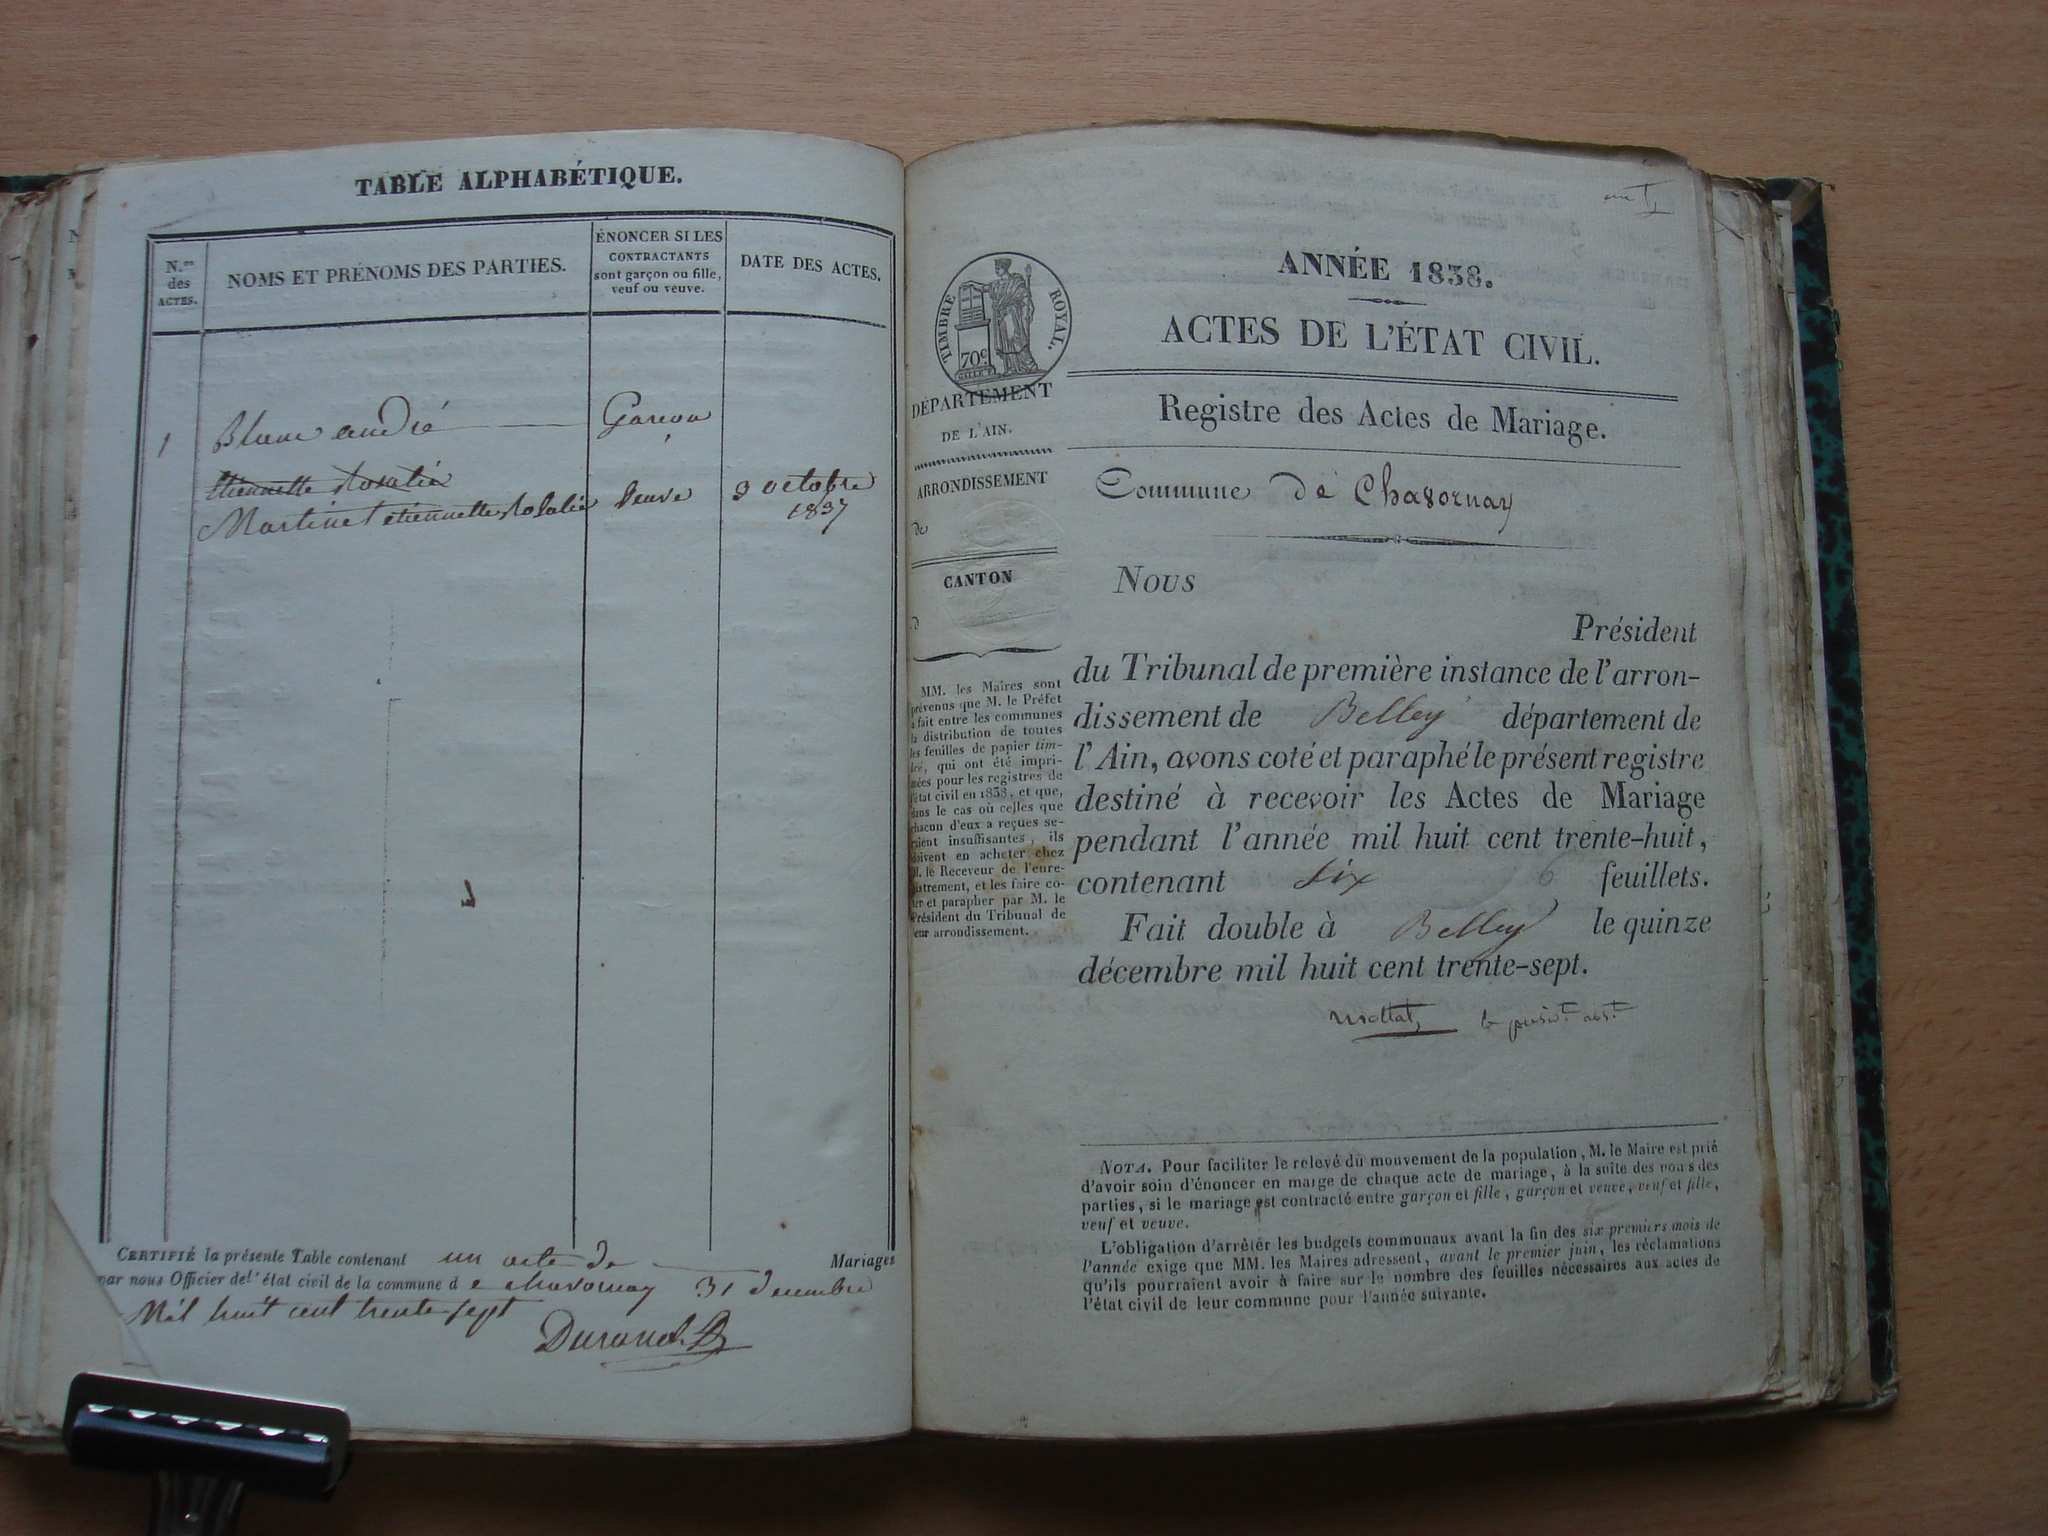 TABLE ALPHABÉTIQUE.
N.os des ACTES.
NOMS ET PRÉNOMS DES PARTIES.
ÉNONCER SI LES
CONTRACTANTS
sont garçon ou fille,
veuf ou veuve.
DATE DES ACTES.
1 Blanc andré Garçon
Etiennette Rosalie
Martinet etiennette Rosalie Veuve 3 octobre
1837
CERTIFIÉ la présente Table contenant un acte de Mariages
par nous Officier de l'état civil de la commune d e chavornay 31 decembre
Mil huit cent trente sept
Durand
ANNÉE 1838.
ACTES DE L'ÉTAT CIVIL.
TIMBRE ROYAL.
70c
DÉPARTEMENT
DE L'AIN.
ARRONDISSEMENT
de
CANTON
d
MM. les Maires sont
prévenus que M. le Préfet
a fait entre les communes
la distribution de toutes
les feuilles de papier tim-
bré, qui ont été impri-
mées pour les registres de
l'état civil en 1838, et que,
dans le cas où celles que
chacun d'eux a reçues se-
raient insuffisantes, ils
doivent en acheter chez
M. le Receveur de l'enre-
gistrement, et les faire co-
ter et parapher par M. le
Président du Tribunal de
leur arrondissement.
Registre des Actes de Mariage.
Commune de Chavornay
Nous
Président
du Tribunal de première instance de l'arron-
dissement de Belley département de
l'Ain, avons coté et paraphé le présent registre
destiné à recevoir les Actes de Mariage
pendant l'année mil huit cent trente-huit,
contenant six 6 feuillets.
Fait double à Belley le quinze
décembre mil huit cent trente-sept.
NOTA. Pour faciliter le relevé du mouvement de la population, M. le Maire est prié
d'avoir soin d'énoncer en marge de chaque acte de mariage, à la suite des noms des
parties, si le mariage est contracté entre garçon et fille, garçon et veuve, veuf et fille,
veuf et veuve.
L'obligation d'arrêter les budgets communaux avant la fin des six premiers mois de
l'année exige que MM. les Maires adressent, avant le premier juin, les réclamations
qu'ils pourraient avoir à faire sur le nombre des feuilles nécessaires aux actes de
l'état civil de leur commune pour l'année suivante.